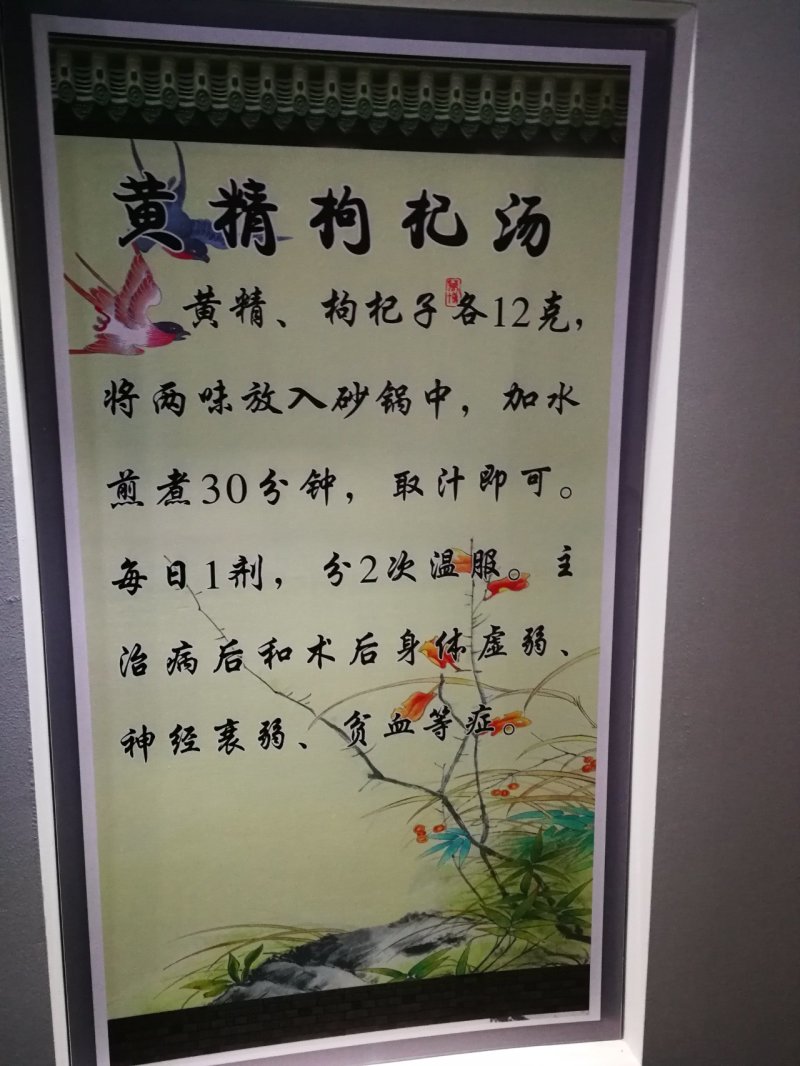 黄精枸杞汤
黄精、枸杞子各12克,
将两味放入砂锅中,加水
煎煮30分钟,取汁即可。
每日1剂,分2次温服。主
治病后和术后身体虚弱、
神经衰弱、贫血等症。